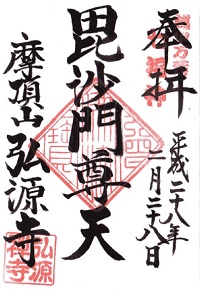 奉拝
平成二十八年
二月二十八日
毘沙門尊天
摩頂山弘源寺
弘源
禅寺